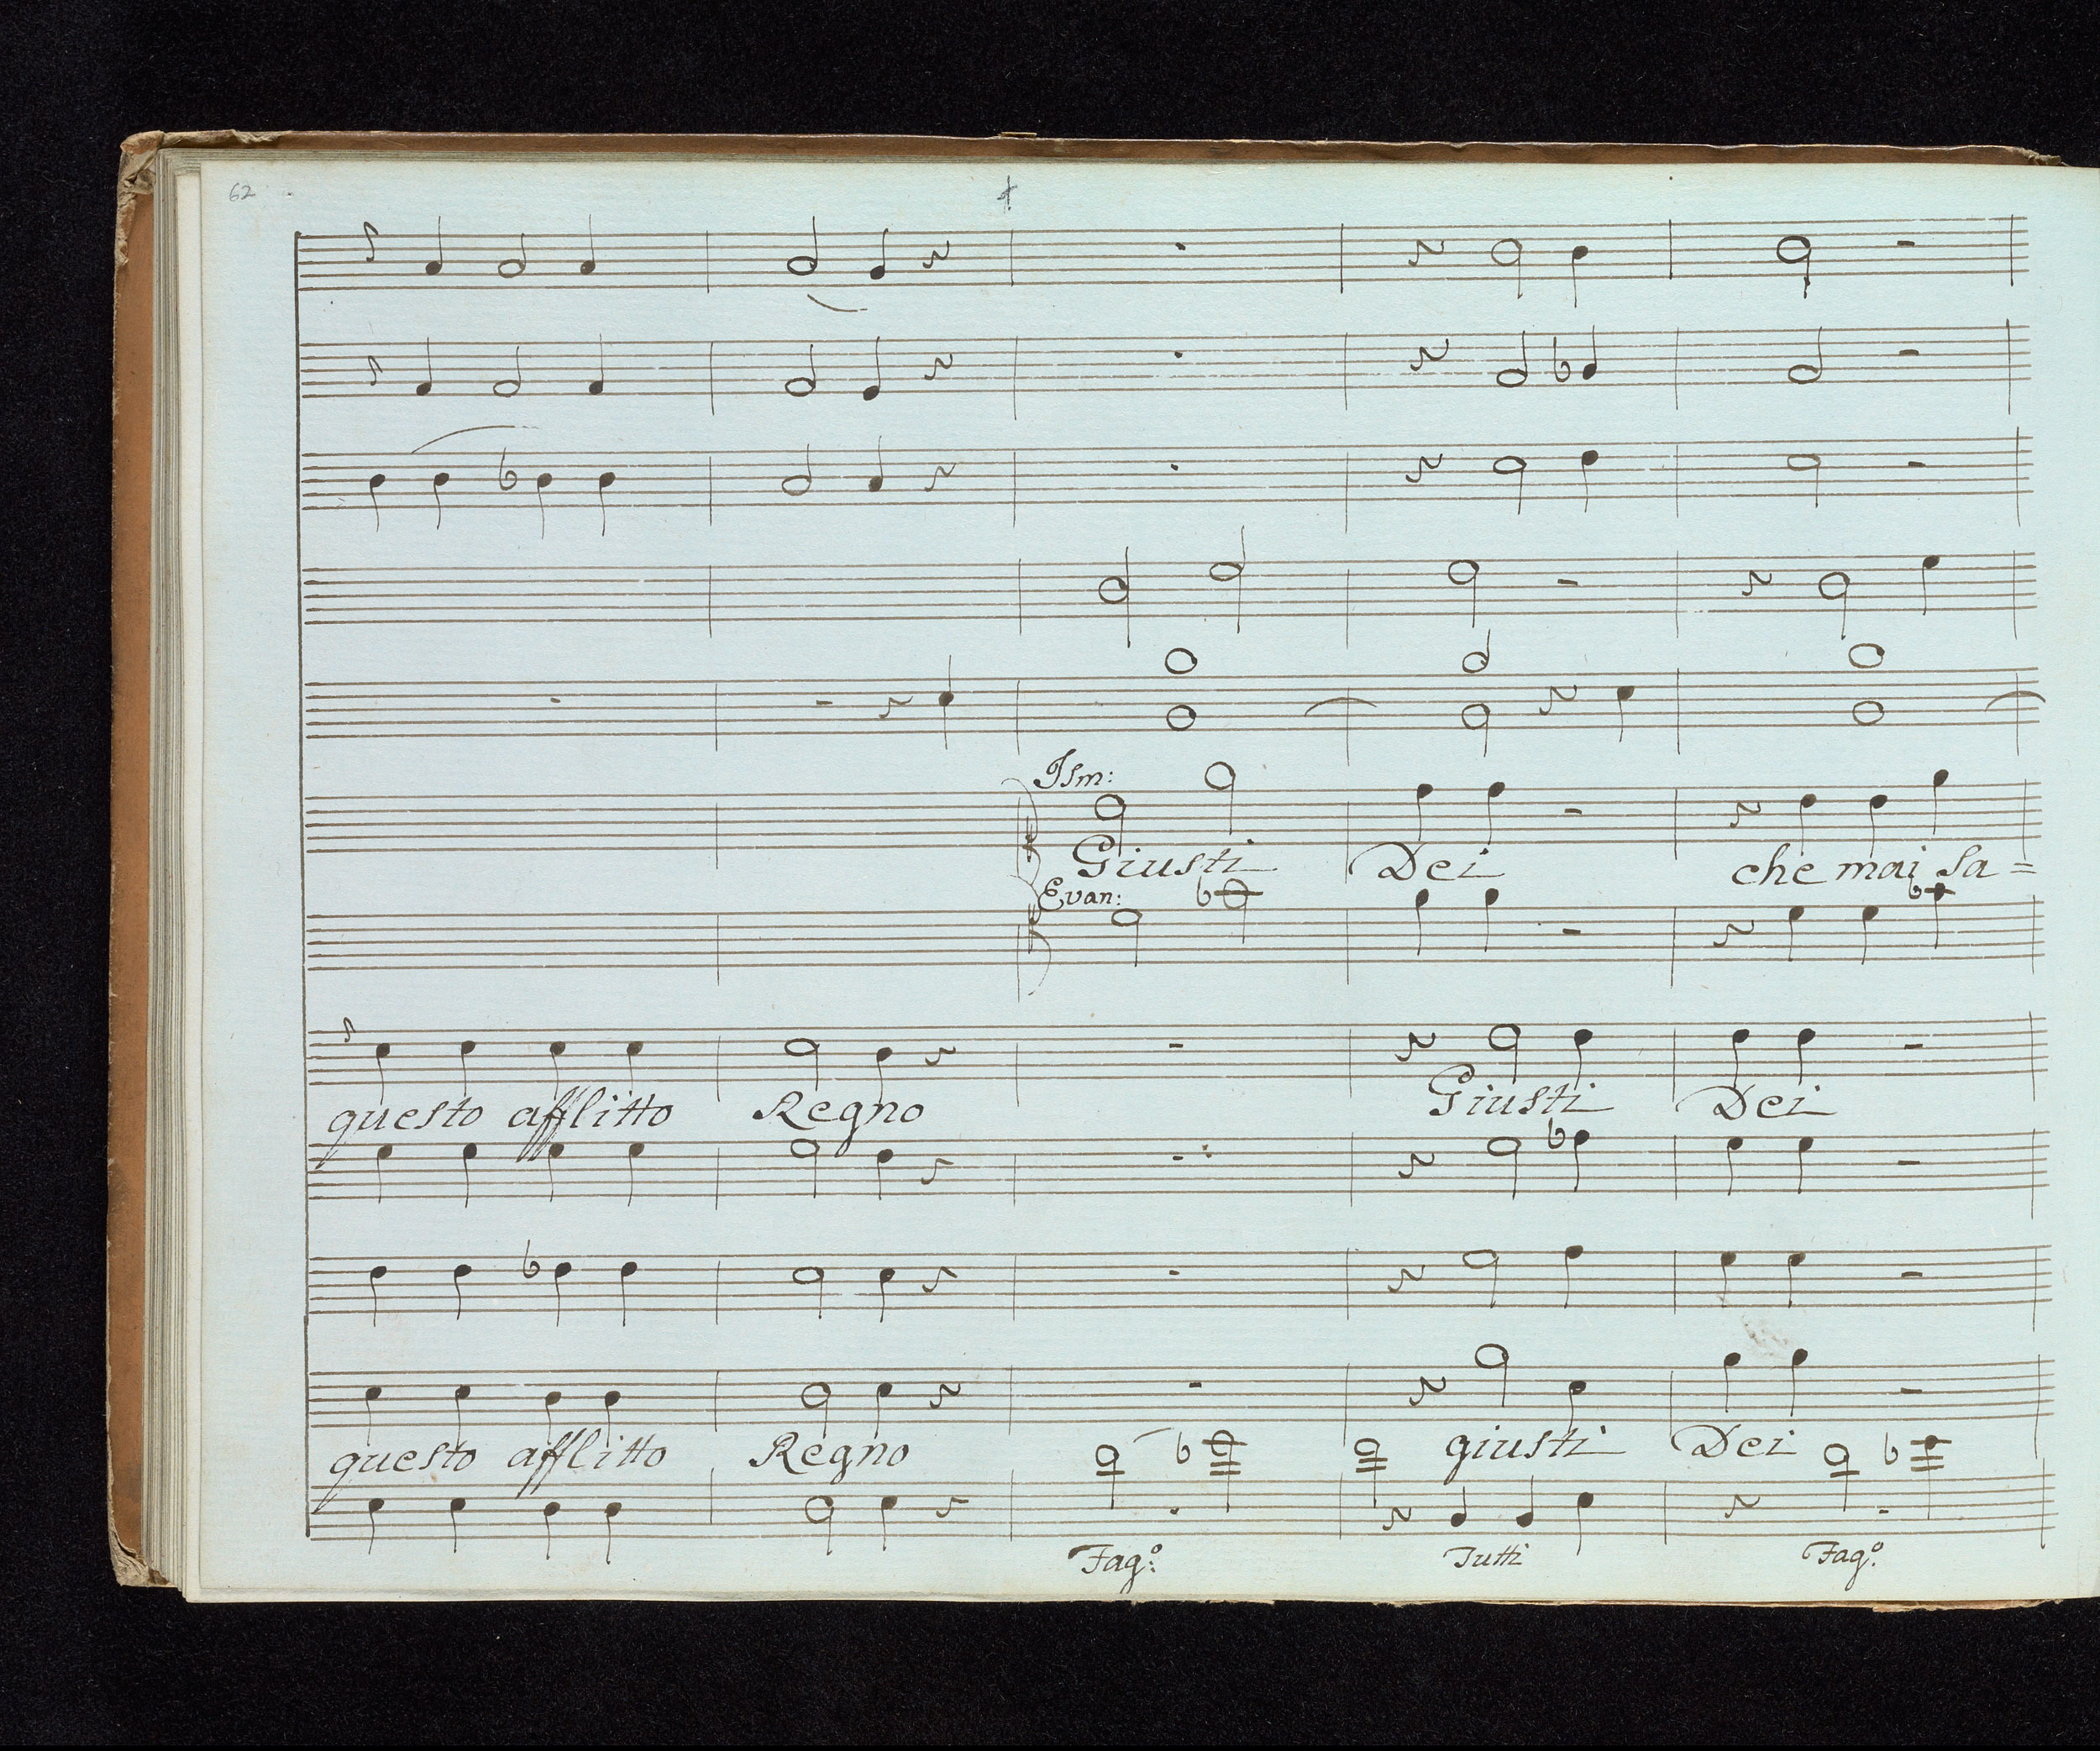 62
Ism:
Giusti Dei che mai sa=
Evan:
Giusti Dei
questo afflitto Regno
giusti Dei
questo afflitto Regno
Fag.º Tutti Fag.º